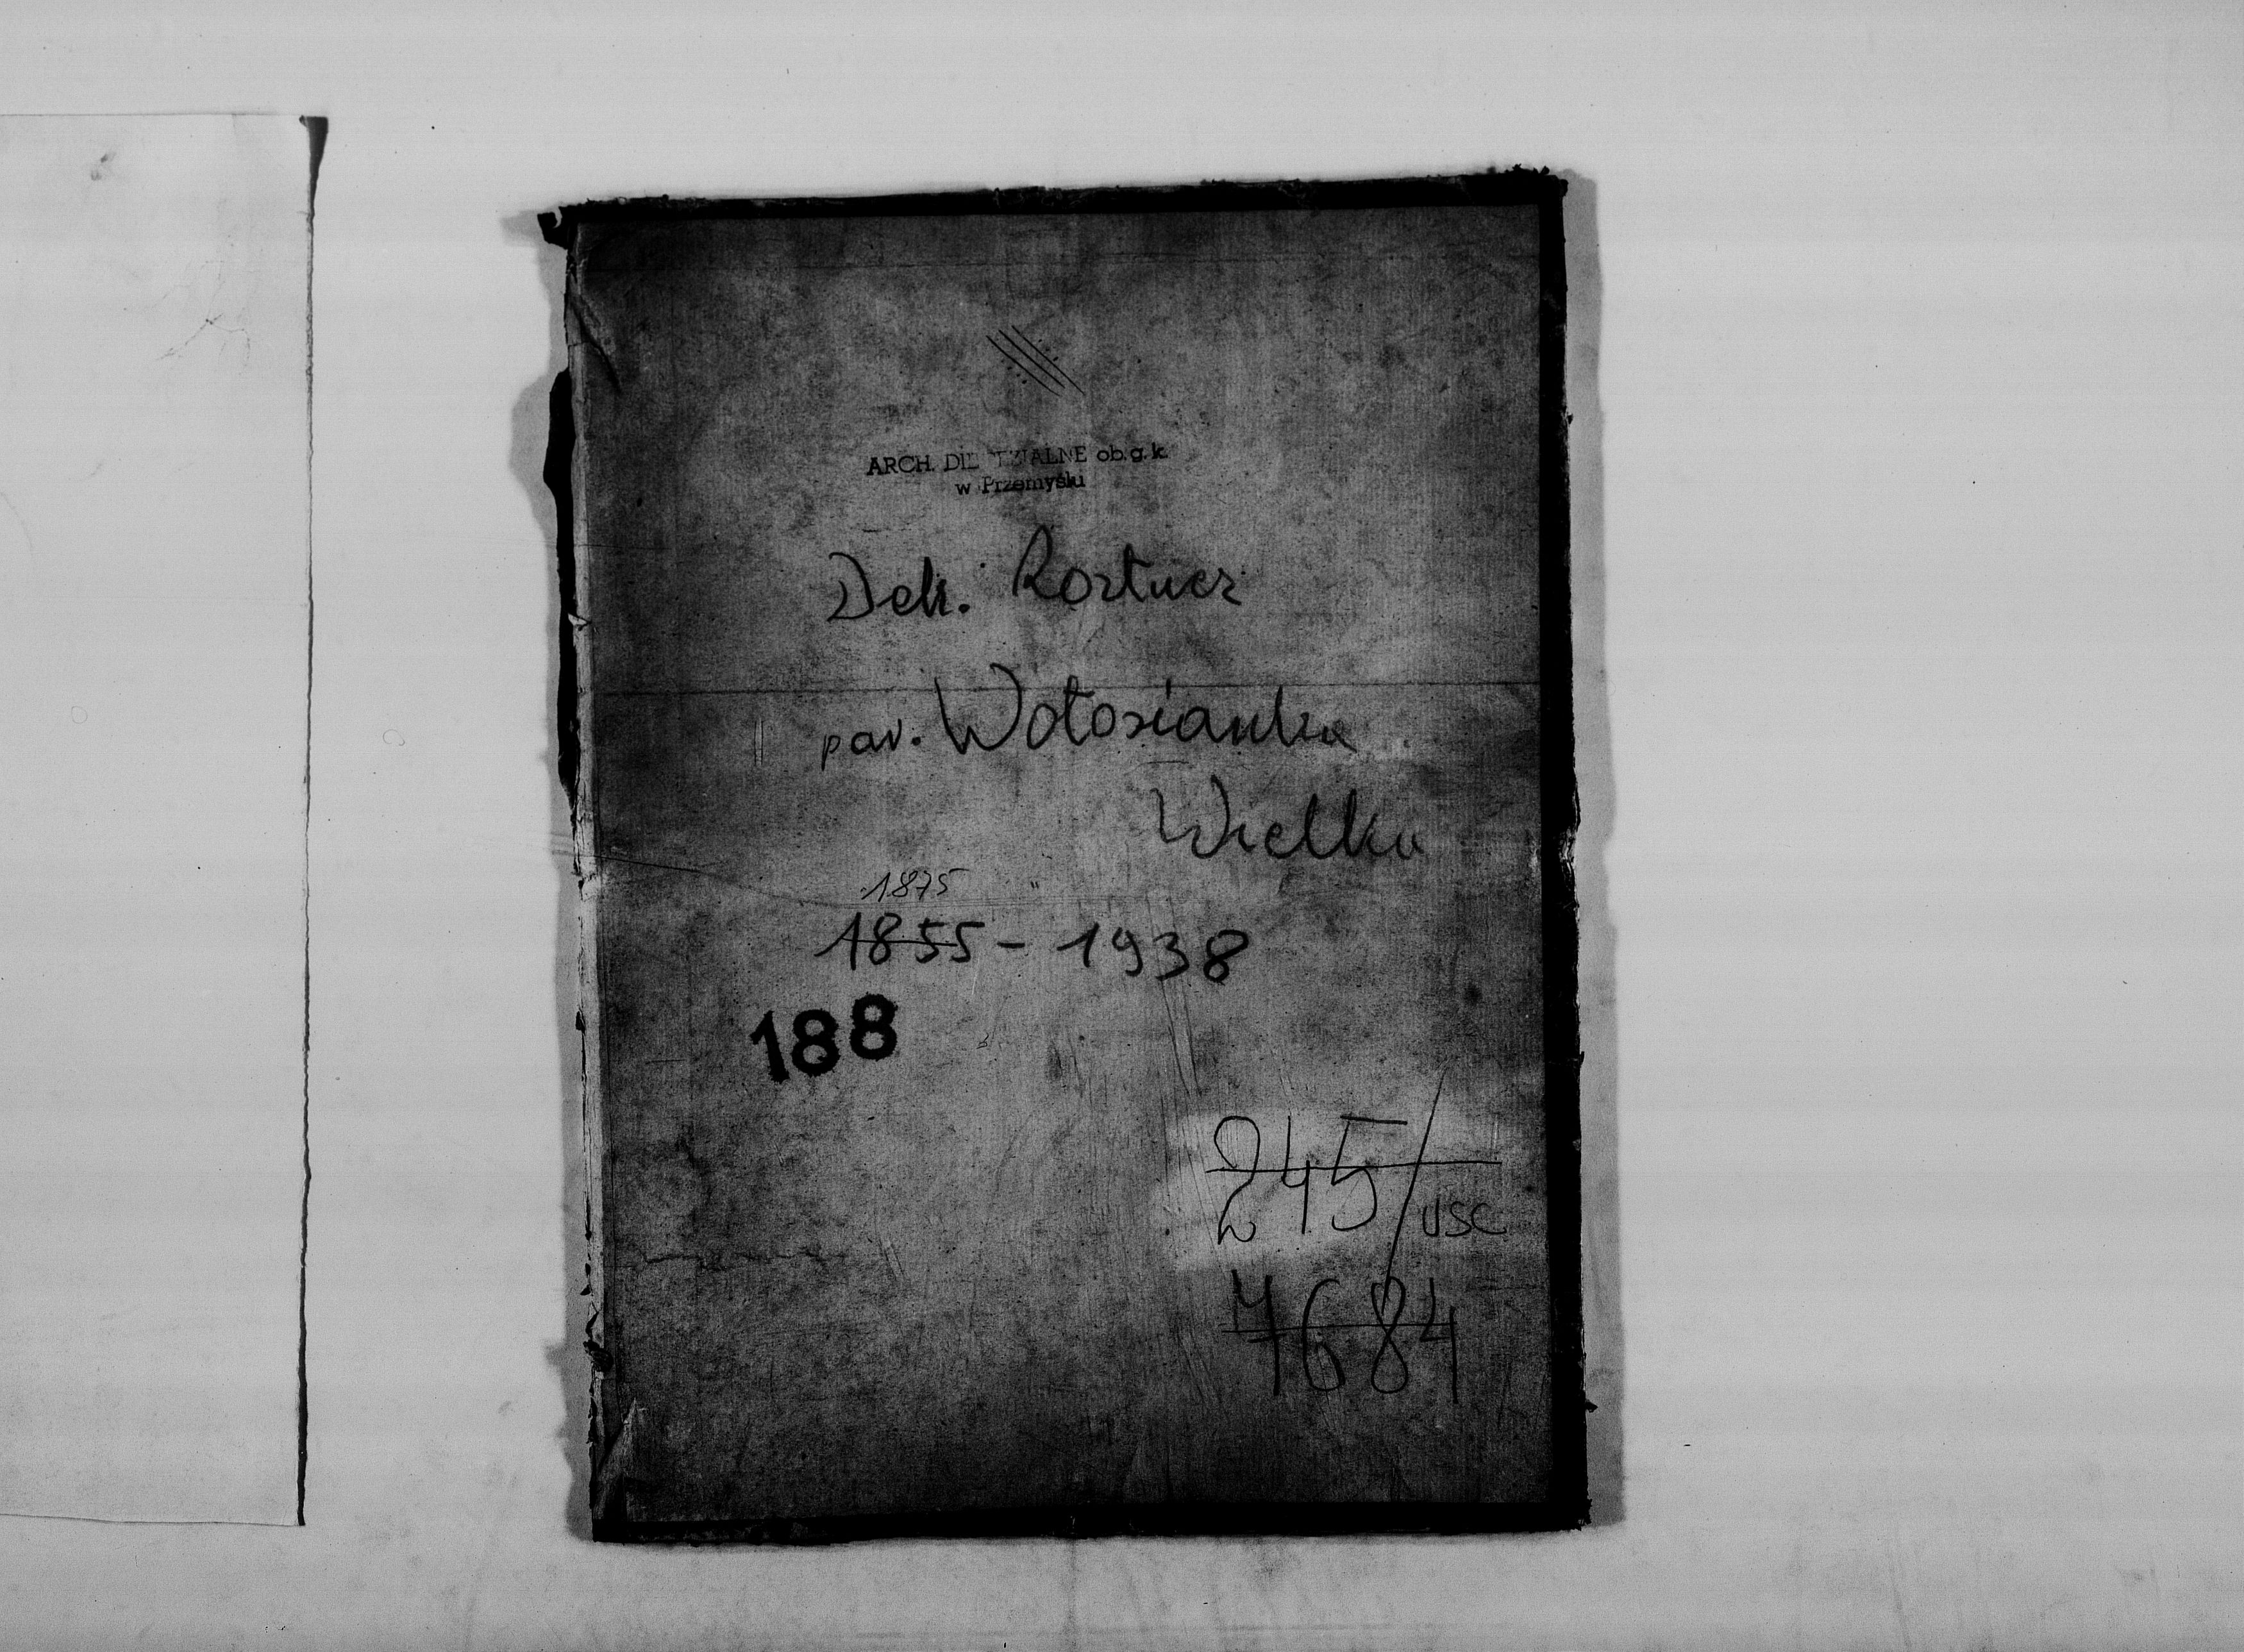 ARCH. DIECEZJALNE ob. g. k.
w Przemyślu
Dek. Roztucz
par. Wołosianka
Wielka
1875
1855 - 1938
188
245/USC
7684